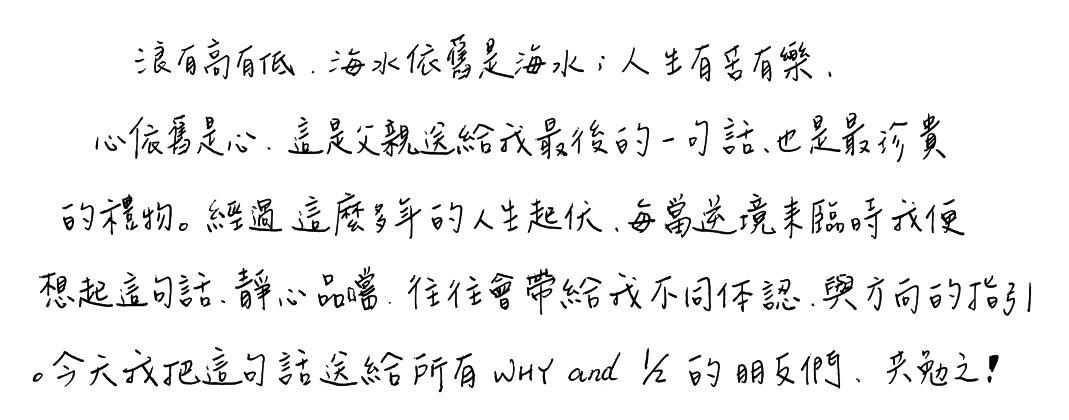 浪有高有低.海水依舊是海水;人生有苦有樂.
心依舊是心.這是父親送給我最後的一句話、也是最珍貴
的禮物。經過這麼多年的人生起伏.每當逆境來臨時我便
想起這句話.靜心品嚐.往往會帶給我不同体認.與方向的指引
。今天我把這句話送給所有WHY and ½的朋友們、共勉之!